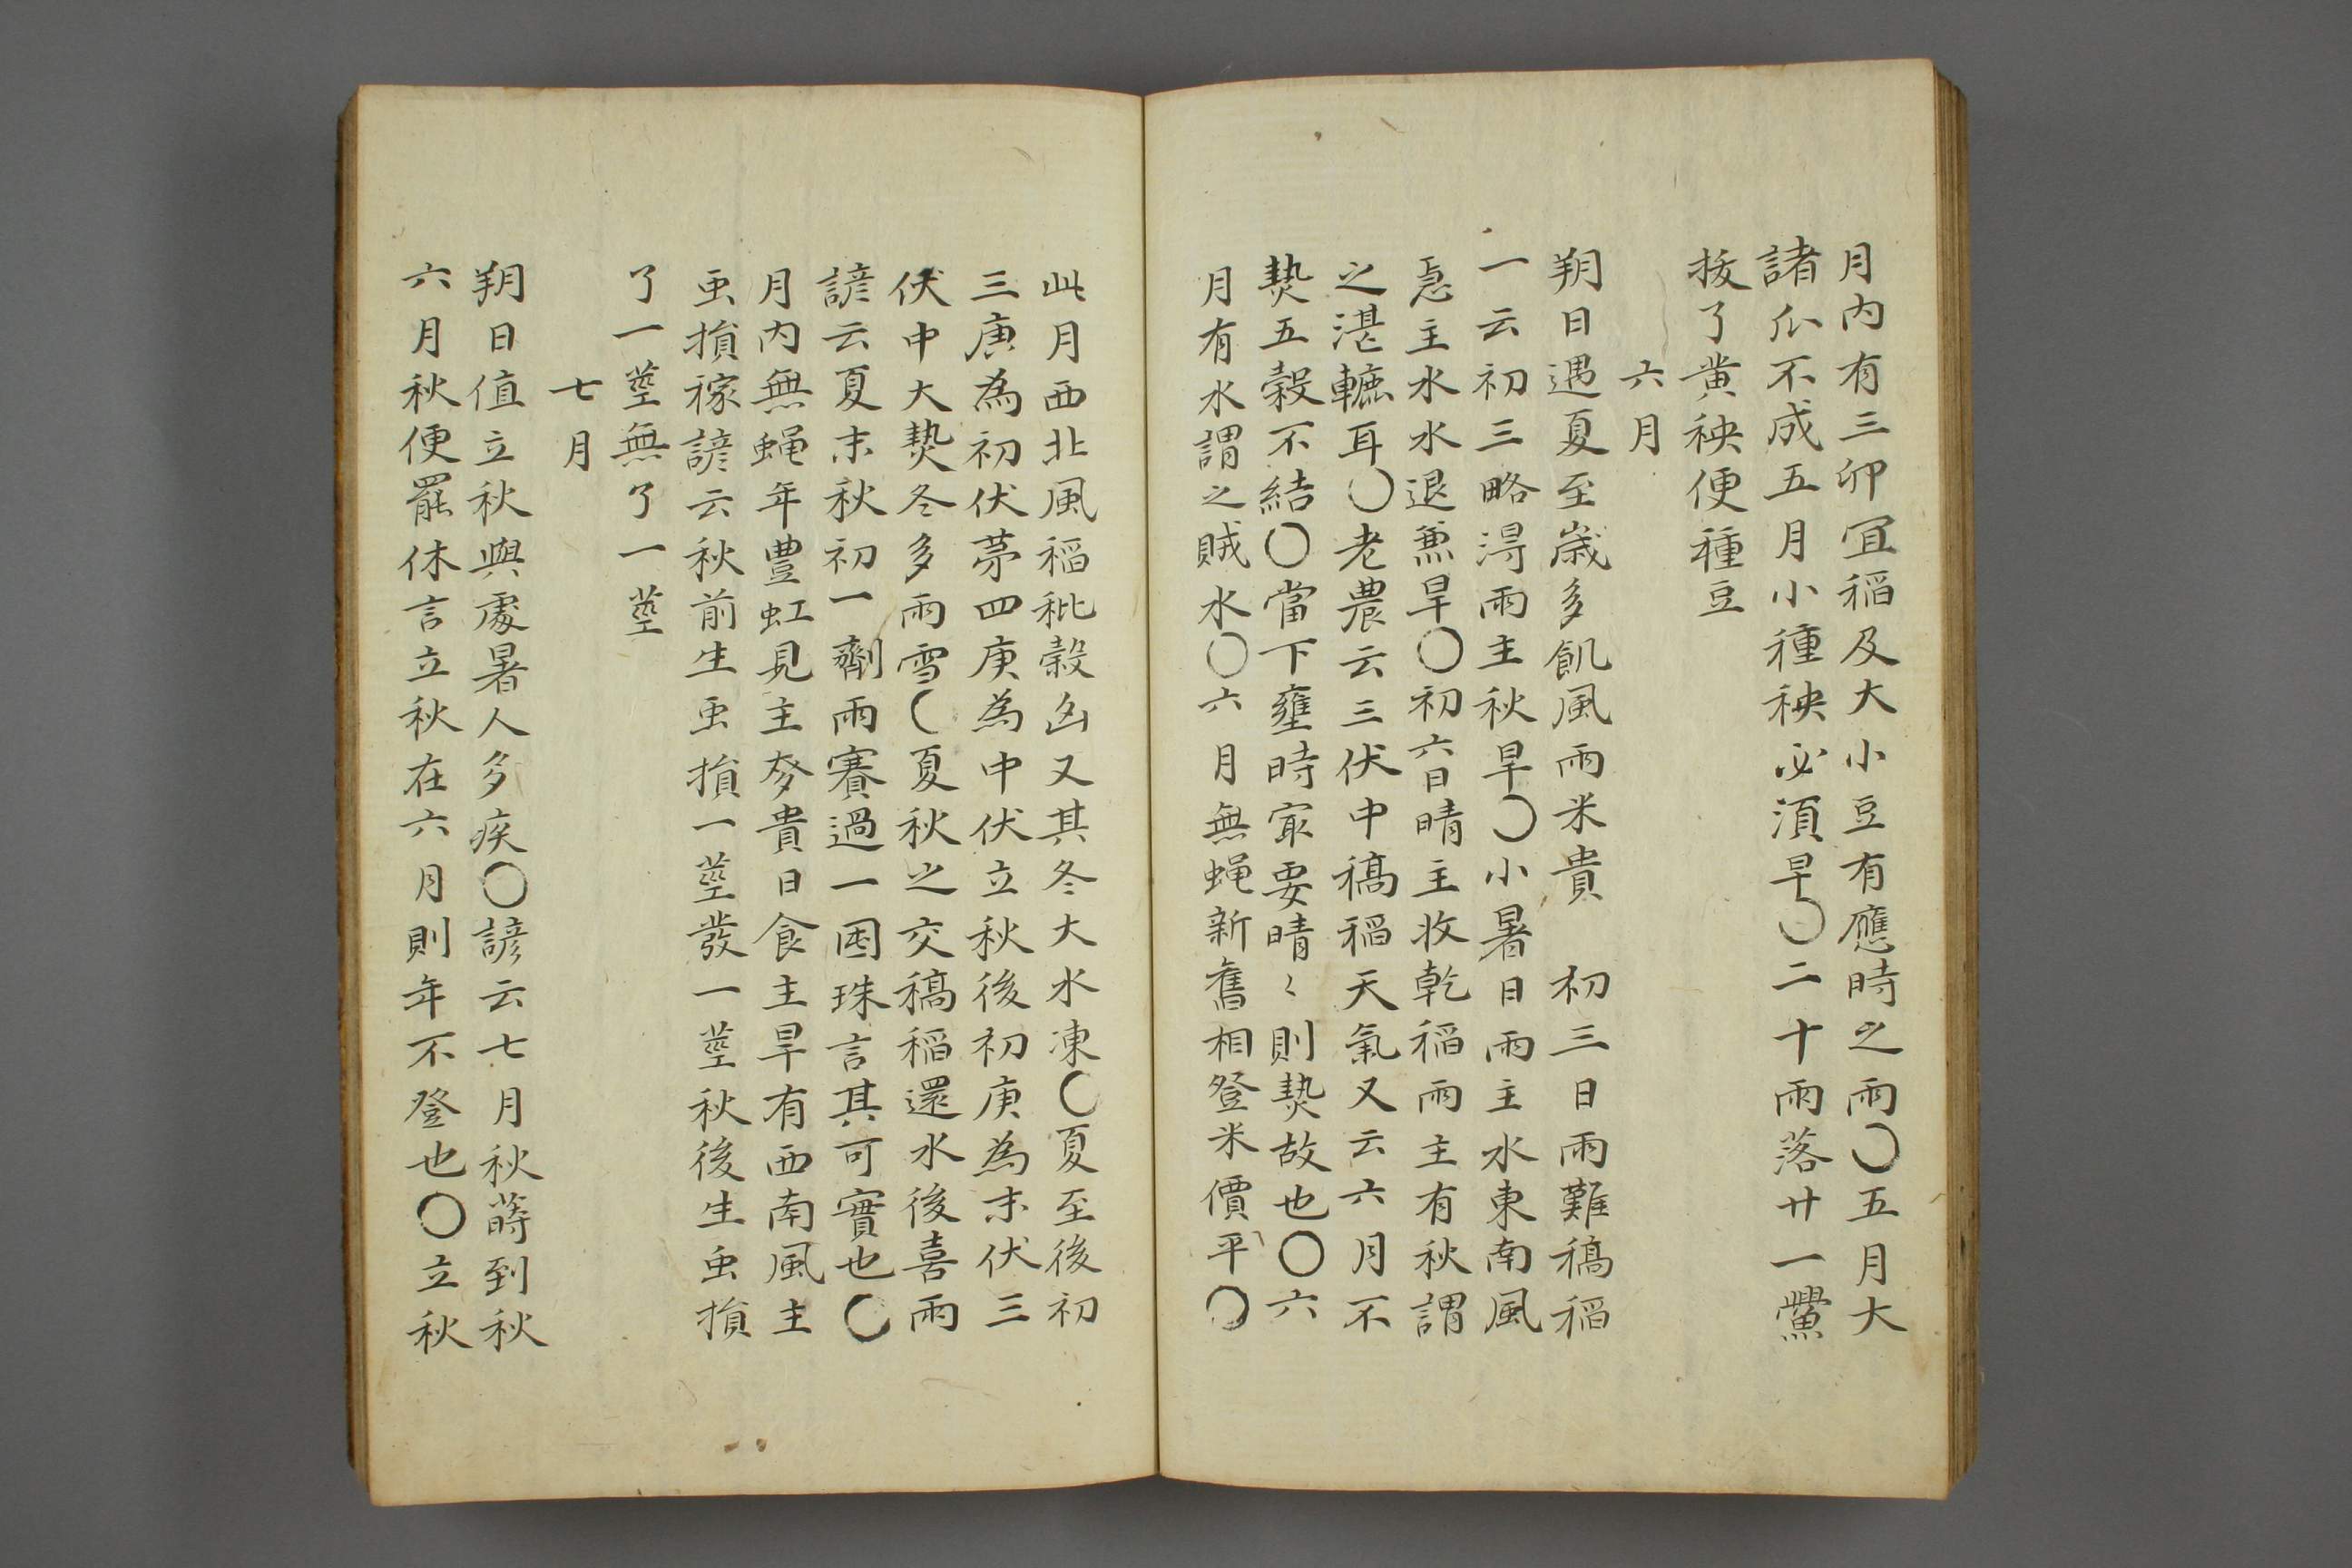 月内有三卯冝稲及大小豆有應時之雨〇五月大
諸瓜不成五月小種秧必湏早〇二十雨落廿一黌
拔了黄秧便種豆
六月
朔日遇夏至歳多飢風雨米貴　初三日雨難稿稲
一云初三略淂雨主秋旱〇小暑日雨主水東南風
急主水水退兼旱〇初六日晴主收乾稲雨主有秋謂
之湛轆耳〇老農云三伏中稿稲天氣又云六月不
𤍠五穀不結〇當下壅時㝡要晴〻則𤍠故也〇六
月有水謂之賊水〇六月無蝿新舊相登米價平〇
此月西北風稲秕穀凶又其冬大水凍〇夏至後初
三庚為初伏苐四庚為中伏立秋後初庚為末伏三
伏中大𤍠冬多雨雪〇夏秋之交稿稲還水後喜雨
諺云夏末秋初一劑雨賽過一囷珠言其可寶也〇
月内無蝿年豊虹見主麥貴日食主旱有西南風主
䖝損稼諺云秋前生䖝損一莖發一莖秋後生䖝損
了一莖無了一莖
七月
朔日值立秋與處暑人多疾〇諺云七月秋蒔到秋
六月秋便罷休言立秋在六月則年不登也〇立秋